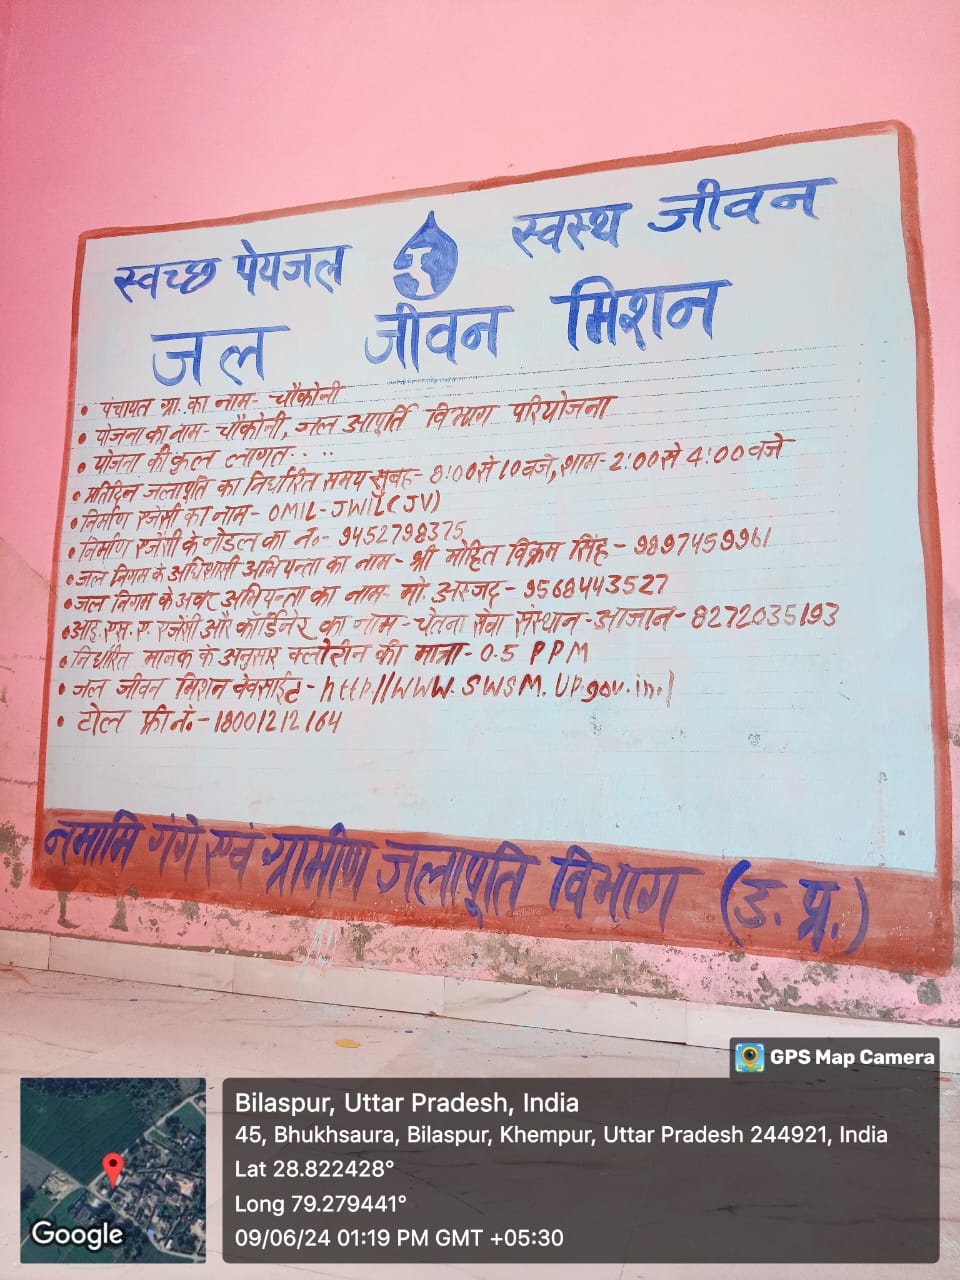 स्वच्छ पेयजल स्वस्थ जीवन
जल जीवन मिशन
• पंचायत ग्रा. का नाम- चौकोनी
• योजना का नाम- चौकोनी, जल आपूर्ति विभाग परियोजना
• योजना की कुल लागत....
• प्रतिदिन जलापूर्ति का निर्धारित समय सुबह- 8:00 से 10 वजे, शाम- 2:00 से 4:00 वजे
• निर्माण एजेंसी का नाम- OMIL-JWIL(JV)
• निर्माण एजेंसी के नोडल का नं.- 9452798375
• जल निगम के अधिशासी अभियन्ता का नाम- श्री मोहित विक्रम सिंह- 9897459961
• जल निगम के अवर अभियन्ता का नाम- मो. अस्जद- 9568443527
• आइ. एस. ए. एजेंसी और कॉर्डिनेटर का नाम- चेतना सेवा संस्थान- आजान- 8272035193
• निर्धारित मानक के अनुसार क्लोरीन की मात्रा- 0.5 PPM
• जल जीवन मिशन वेवसाईट- http//WWW.SWSM.UP.gov.in./
• टोल फ्री नं.- 18001212164
नमामि गंगे एवं ग्रामीण जलापूर्ति विभाग (उ. प्र.)
GPS Map Camera
Bilaspur, Uttar Pradesh, India
45, Bhukhsaura, Bilaspur, Khempur, Uttar Pradesh 244921, India
Lat 28.822428°
Long 79.279441°
09/06/24 01:19 PM GMT +05:30
Google